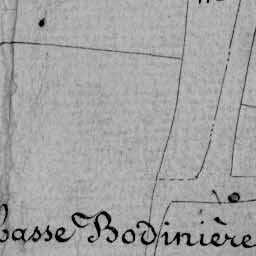 basse Bodinière